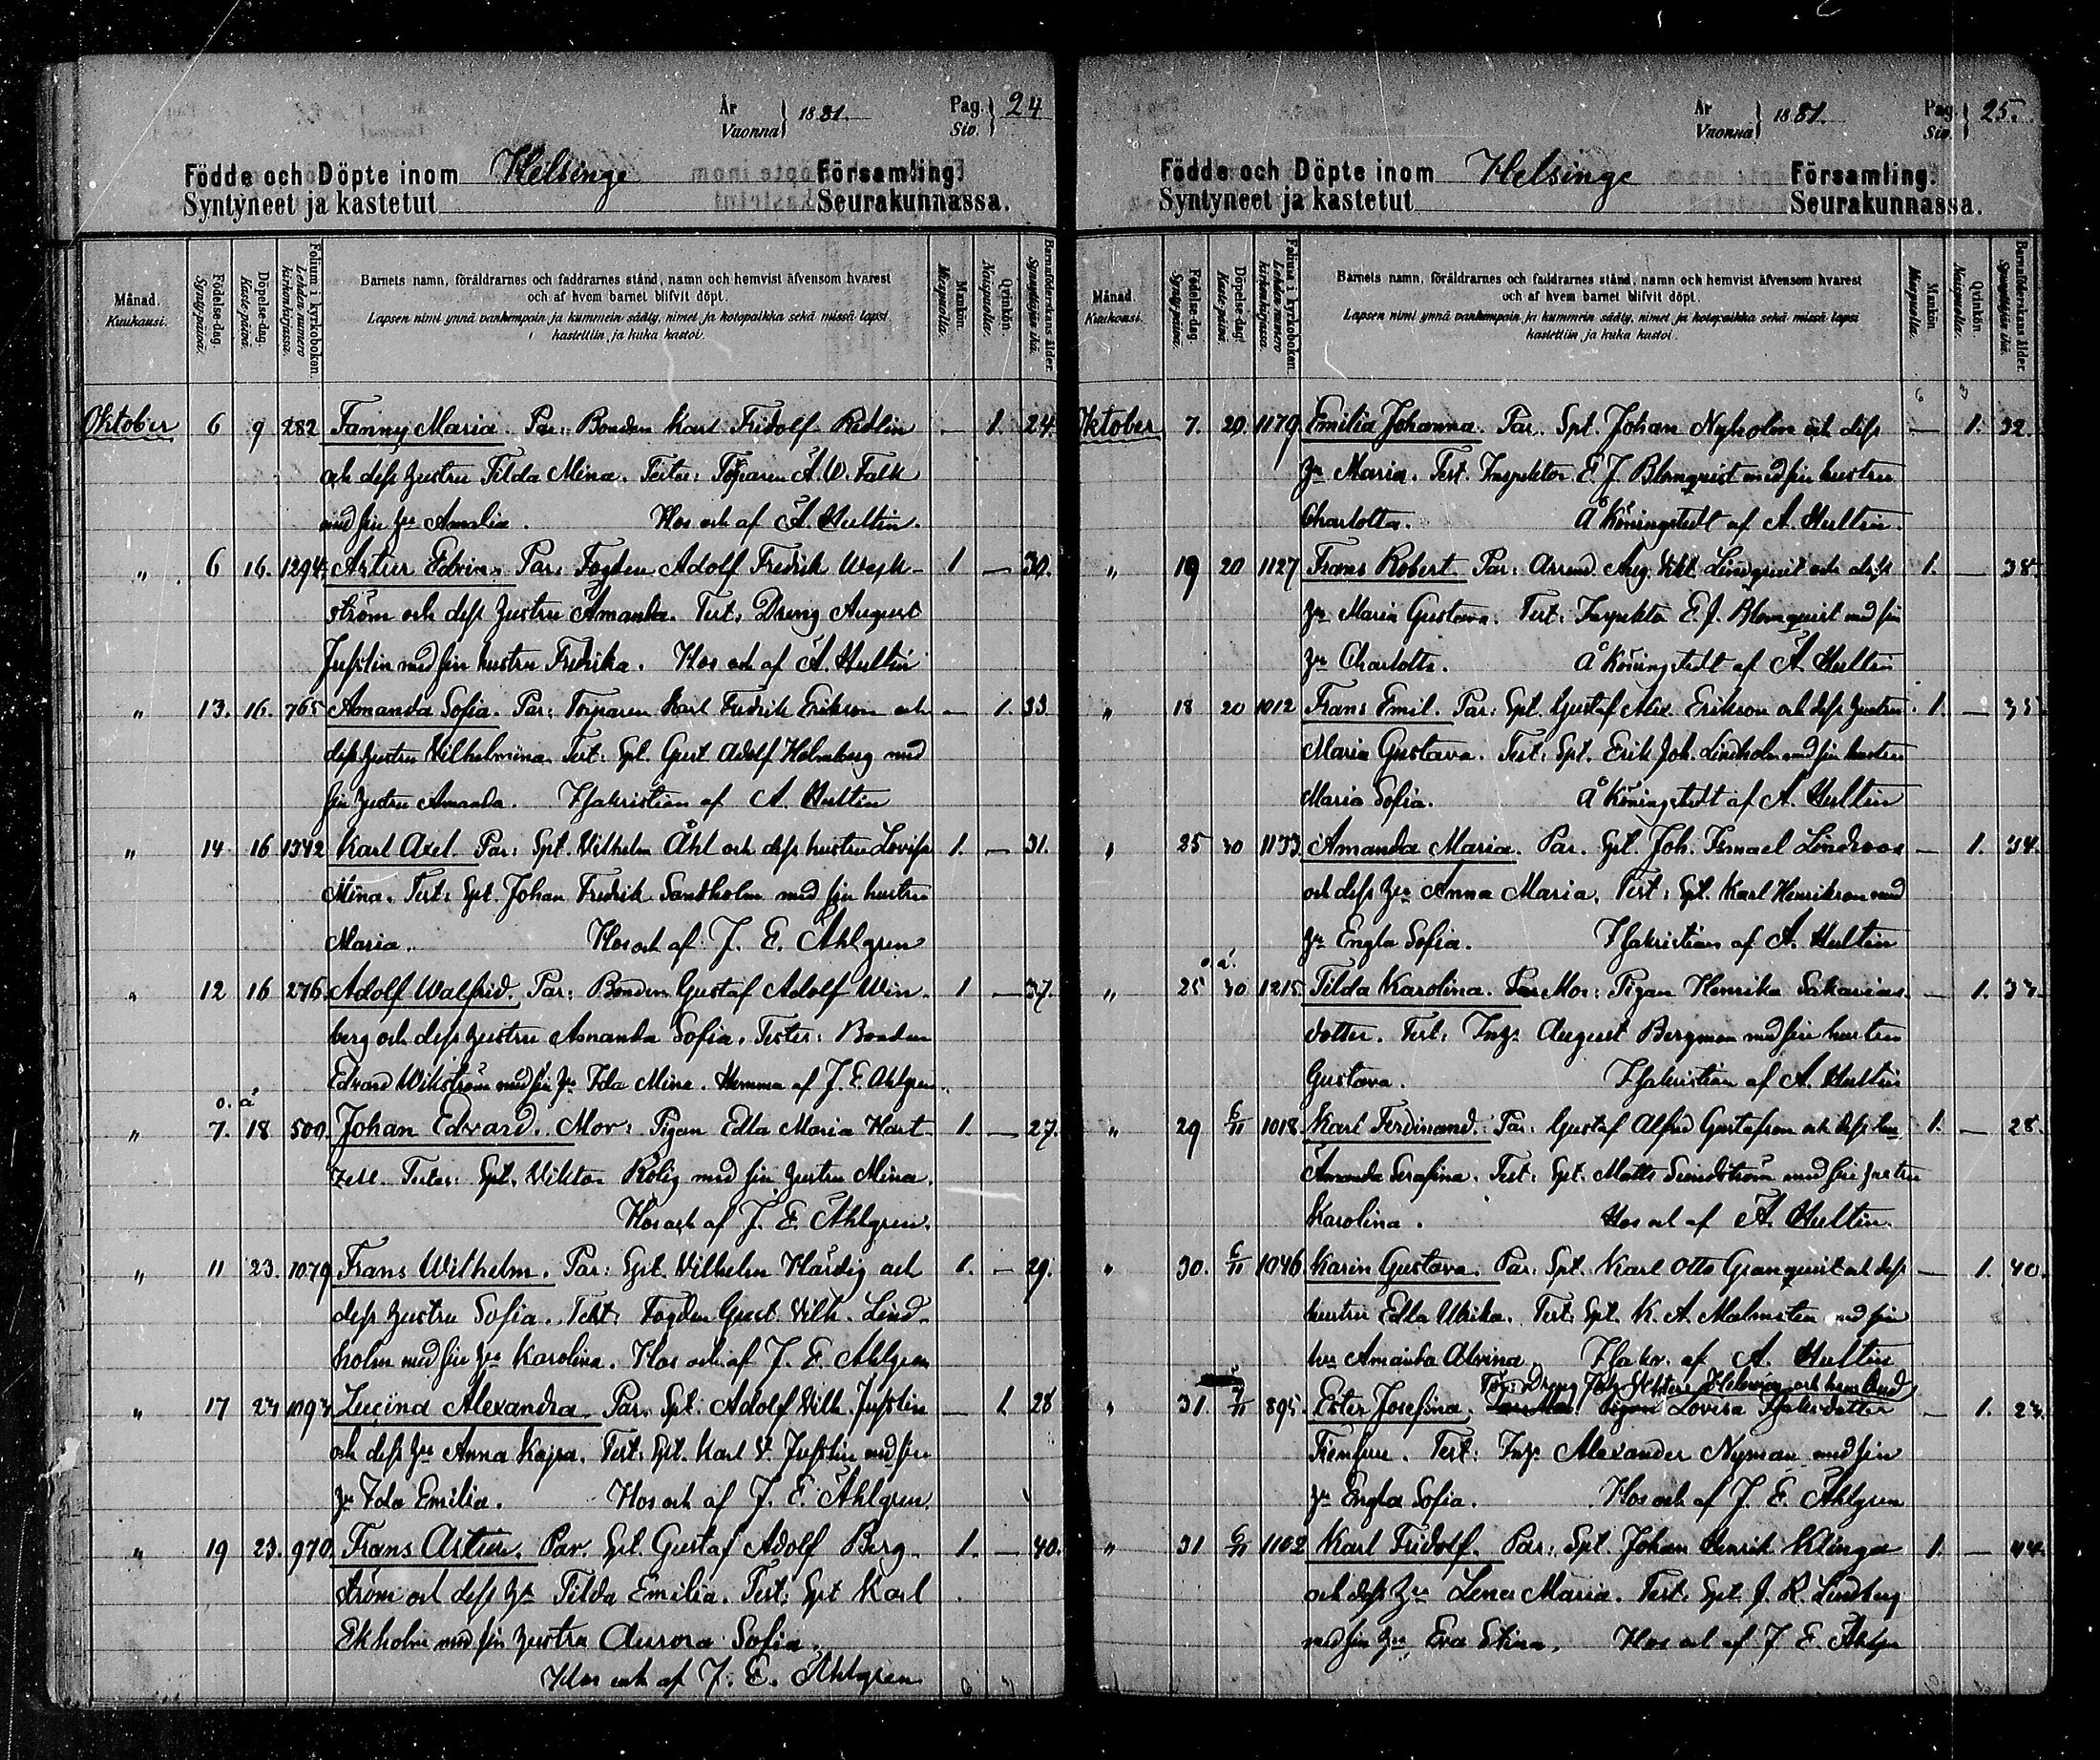 År
Vuonna } 1881. Pag.
Siv. } 24
Födde och Döpte inom Helsinge Församling.
Syntyneet ja kastetut Seurakunnassa.
Månad. Kuukausi.
Födelse-dag. Synty-päivä.
Döpelse-dag. Kaste-päivä.
Folium i kyrkoboken. Lehden numero kirkonkirjassa.
Barnets namn, föräldrarnes och faddrarnes stånd, namn och hemvist äfvensom hvarest
och af hvem barnet blifvit döpt.
Lapsen nimi ynnä vanhempain ja kummein sääty, nimet ja kotopaikka sekä missä lapsi
kastettiin ja kuka kastoi.
Mankön. Miespuolia.
Qvinkön. Naispuolia.
Barnaföderskans ålder. Synnyttäjän ikä.
Oktober 6 9 282 Fanny Maria. Par: Bonden Karl Fridolf Redlin — 1. 24.
och dess hustru Tilda Mina. Testes: Torparen A. W. Falk
med sin hu Amalia. Hos och af A. Hultin.
" 6 16. 1294. Artur Edvin. Par: Fogden Adolf Fredrik Weck- 1 — 30.
ström och dess hustru Amanda. Test: Dreng August
Jusslin med sin hustru Fredrika. Hos och af A. Hultin
" 13. 16. 765 Amanda Sofia. Par: Torparen Karl Fredrik Erikson och — 1. 33.
dess hustru Vilhelmina. Test: Spt. Gust. Adolf Holmberg med
sin hustru Amanda. I Sakristian af A. Hultin
" 14 16 1342 Karl Axel. Par: Spt. Vilhelm Åhl och dess hustru Lovisa 1. — 31.
Mina. Test: Spt. Johan Fredrik Sandholm med sin hustru
Maria. Hos och af J. E. Åhlgren
" 12 16 276. Adolf Walfrid. Par: Bonden Gustaf Adolf Win- 1 — 37.
berg och dess hustru Amanda Sofia. Testes: Bonden
Edvard Wikström med sin hu Ida Mina. Hemma af J. E. Åhlgren.
o. ä
" 7. 18 500. Johan Edvard. Mor: Pigan Edla Maria Hart- 1. — 27.
zell. Testes: Spt. Viktor Rolig med sin hustru Mina.
Hos och af J. E. Åhlgren.
" 11 23. 1079 Frans Wilhelm. Par: Spt. Vilhelm Härdig och 1. — 29.
dess hustru Sofia. Test: Fogden Gust. Vilh. Lind-
holm med sin hu Karolina. Hos och af J. E. Åhlgren
" 17 23 1093 Lucina Alexandra. Par. Spt. Adolf Vilh. Jusslin — 1. 28
och dess hu Anna Kajsa. Test: Spt. Karl V. Jusslin med sin
hu Ida Emilia. Hos och af J. E. Åhlgren.
" 19 23. 970 Frans Artur. Par. Spt. Gustaf Adolf Berg- 1. — 40.
ström och dess hu Tilda Emilia. Test: Spt Karl
Ekholm med sin hustru Aurora Sofia.
Hos och af J. E. Åhlgren
År
Vuonna } 1881. Pag.
Siv. } 25.
Födde och Döpte inom Helsinge Församling.
Syntyneet ja kastetut Seurakunnassa.
Månad. Kuukausi.
Födelse-dag. Synty-päivä.
Döpelse-dag. Kaste-päivä.
Folium i kyrkoboken. Lehden numero kirkonkirjassa.
Barnets namn, föräldrarnes och faddrarnes stånd, namn och hemvist äfvensom hvarest
och af hvem barnet blifvit döpt.
Lapsen nimi ynnä vanhempain ja kummein sääty, nimet ja kotopaikka sekä missä lapsi
kastettiin ja kuka kastoi.
Mankön. Miespuolia.
Qvinkön. Naispuolia.
Barnaföderskans ålder. Synnyttäjän ikä.
Oktober 7. 20. 1179 Emilia Johanna. Par. Spt. Johan Nyholm och dess — 1. 32.
hu Maria. Test. Inspektor E. J. Blomquist med sin hustru
Charlotta. Å Köningstedt af A. Hultin.
" 19 20 1127 Frans Robert. Par: Arrend. Aug. Vikt. Lindquist och dess 1. — 38.
hu Maria Gustava. Test: Inspektor E. J. Blomquist med sin
hu Charlotta. Å Köningstedt af A. Hultin
" 18 20 1012 Frans Emil. Par: Spt. Gustaf Alex. Erikson och dess hustru 1. — 35
Maria Gustava. Test: Spt. Erik Joh. Lindholm med sin hustru
Maria Sofia. Å Köningstedt af A. Hultin
" 25 30 1133. Amanda Maria. Par. Spt. Joh. Ismael Lindroos — 1. 34.
och dess hu Anna Maria. Test: Spt. Karl Henrikson med
hu Engla Sofia. I Sakristian af A. Hultin
o. ä.
" 25 30 1215. Tilda Karolina. Mor: Pigan Henrika Sakarias- — 1. 33.
dotter. Test: Inh. August Bergman med sin hustru
Gustava. I Sakristian af A. Hultin
" 29 6/11 1018. Karl Ferdinand. Par: Gustaf Alfred Gustafson och dess hu 1. — 28.
Amanda Serafina. Test: Spt. Matts Sundström med sin hustru
Karolina. Hos och af A. Hultin.
" 30. 6/11 1046 Karin Gustava. Par: Spt. Karl Otto Granquist och dess — 1. 40.
hustru Edla Ulrika. Test: Spt. K. A. Malmsten med sin
hu Amanda Alvina. I Sakr. af A. Hultin
Dreng Joh. och hans
" 31. /11 895. Ester Josefina. Pigan Lovisa — 1. 23.
Test: Inh. Alexander Nyman med sin
hu Engla Sofia. Hos och af J. E. Åhlgren
" 31 6/11 1102 Karl Fridolf. Par: Spt. Johan Henrik Klinga 1. — 44.
och dess hu Lena Maria. Test: Spt. J. R. Lindberg
med sin hu Eva Stina. Hos och af J E. Åhlgr